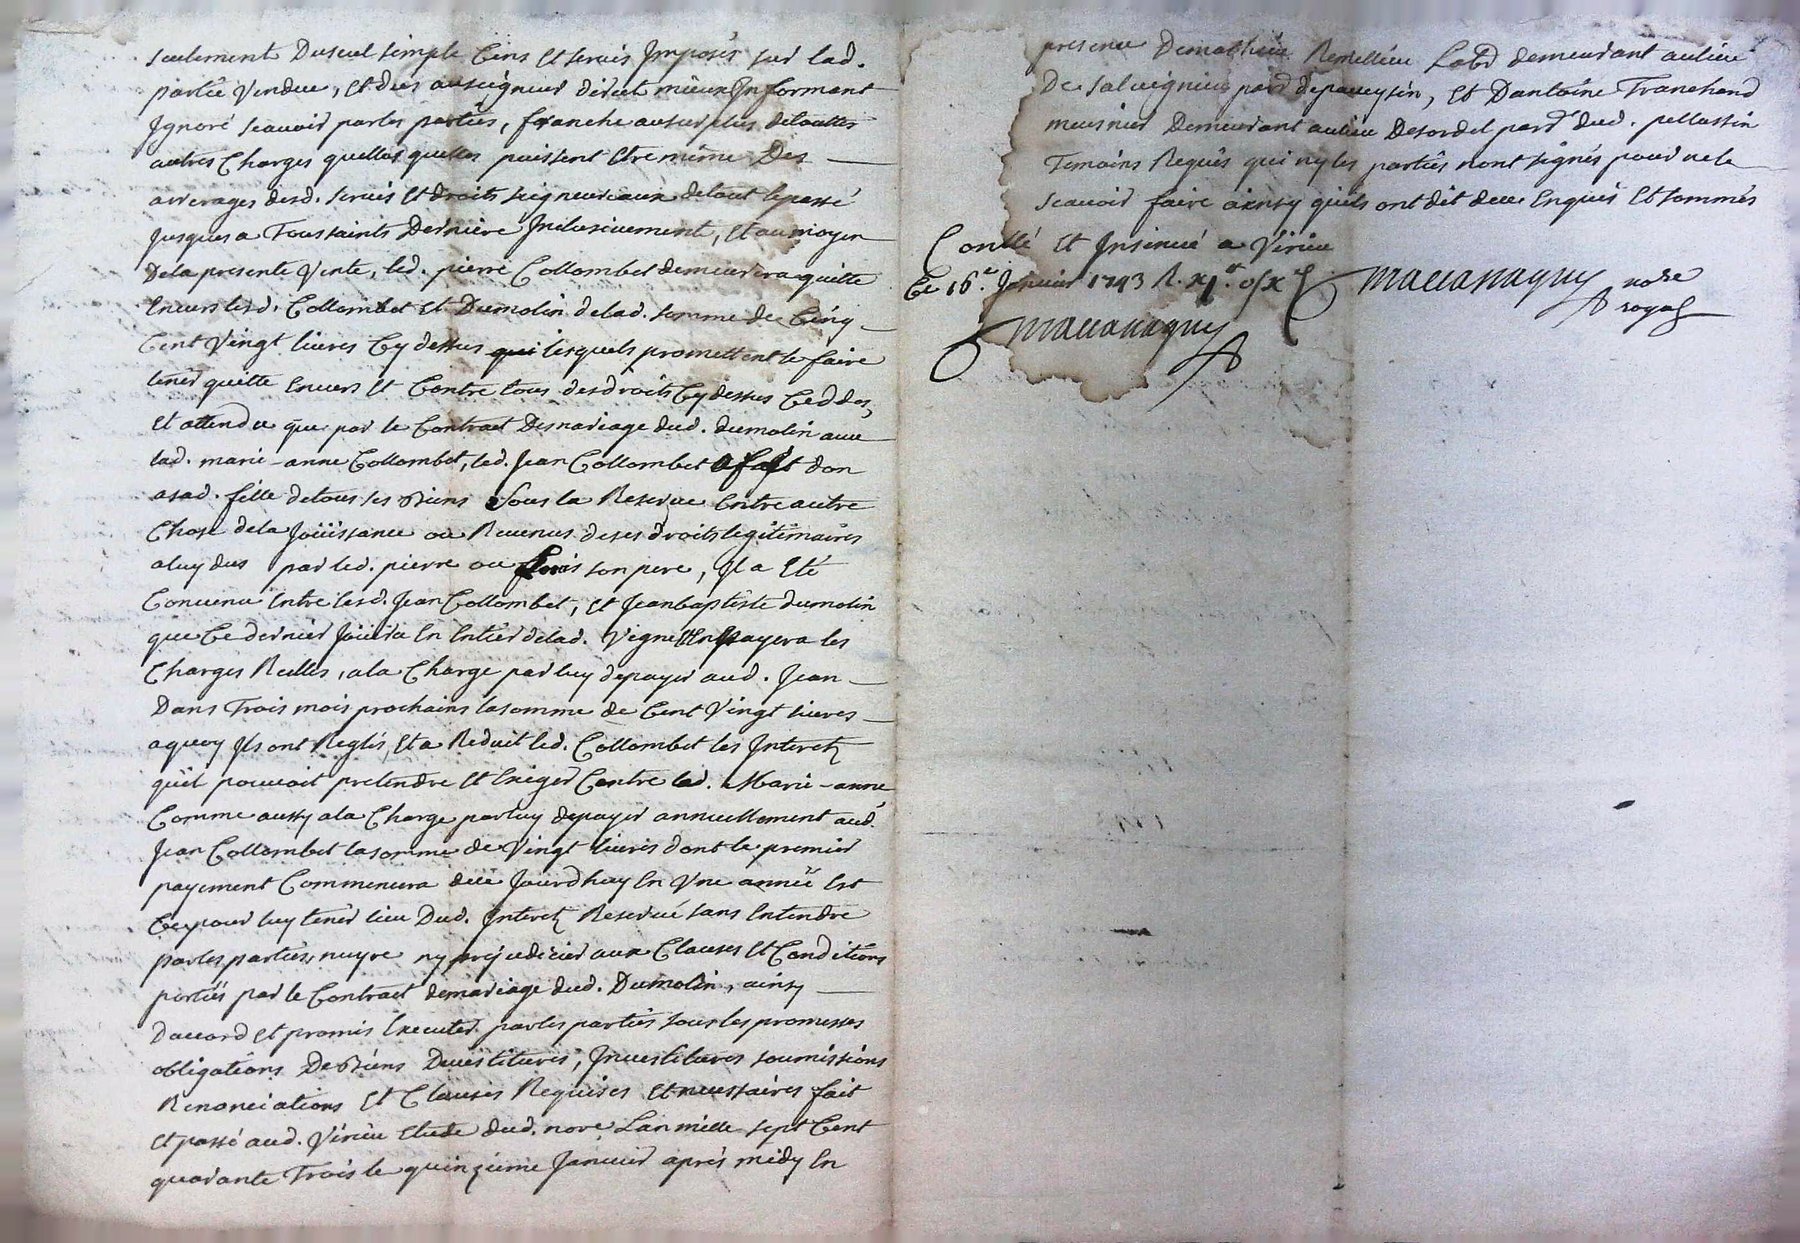 seulement Du seul simple Cens Et servis Imposés sur lad.
partie Vendue, Et dies au seigneur direct mieux Informant
Ignoré scauoir par les parties, franche au surplus de touttes
autres Charges quelles quelles puissent Etre même Des
arrerages desd. servis Et droits seigneuriaux de tout le passé
Jusques a Toussaints Derniere Inclusiuement, Et au moyen
De la presente Vente, led. pierre Collombet demeurera quitte
Enuers lesd. Collombet Et Dumolin de lad. somme de Cinq
Cent Vingt liures Cy dessus lesquels promettent le faire
tenir quitte Enuers Et Contre tous des droits Cy dessus Ceddes,
Et attendu que par le Contract De mariage dud. dumolin auec
lad. marie-anne Collombet, led. Jean Collombet a fait don
a sad. fille de tous ses Biens sous la Reserue Entre autre
Chose de la Joüissance ou Reuenus de ses droits legitimaires
a luy dus par led. pierre ou son pere, Il a Eté
Conuenu Entre lesd. Jean Collombet, Et Jean baptiste dumolin
que Ce dernier Joüira En Entier de lad. Vigne En payera les
Charges Reelles, a la Charge par luy de payer aud. Jean
Dans Trois mois prochains la somme de Cent Vingt liures
a quoy Ils ont Reglés, Et a Reduit led. Collombet les Interetz
qu'il pouuoit pretendre Et Exiger Contre lad. Marie-anne
Comme aussy a la Charge par luy de payer annuellement aud.
Jean Collombet la somme de Vingt liures dont le premier
payement Commencera de ce Jourdhuy En Vne année Est
Ce pour luy tenir lieu Dud. Interetz Reserué sans Entendre
par les parties, nuyre ny prejudicier aux Clauses Et Conditions
portées par le Contract de mariage dud. Dumolin, ainsy
D'accord Et promis Executer par les parties sous les promesses
obligations De Biens Deuestitures, Inuestitures soumissions
Renonciations Et Clauses Requises Et necessaires fait
Et passé aud. Virieu Etude dud. nore Lan mille sept Cent
quarante Trois le quinzieme Januier après midy En
presence De mathieu Remellieu Labr demeurant au lieu
De saluignieu parr de paueysin, Et D'antoine Tranchand
meusnier Demeurant au lieu De sordel parr dud. pellussin
Temoins Requis qui ny les parties n'ont signés pour ne le
scauoir faire ainsy quils ont dit de ce Enquis Et sommés
Conllé Et Insinué a Virieu
Ce 16e Januier 1743 R.
Mauanaguy nore
royal
Mauanaguy